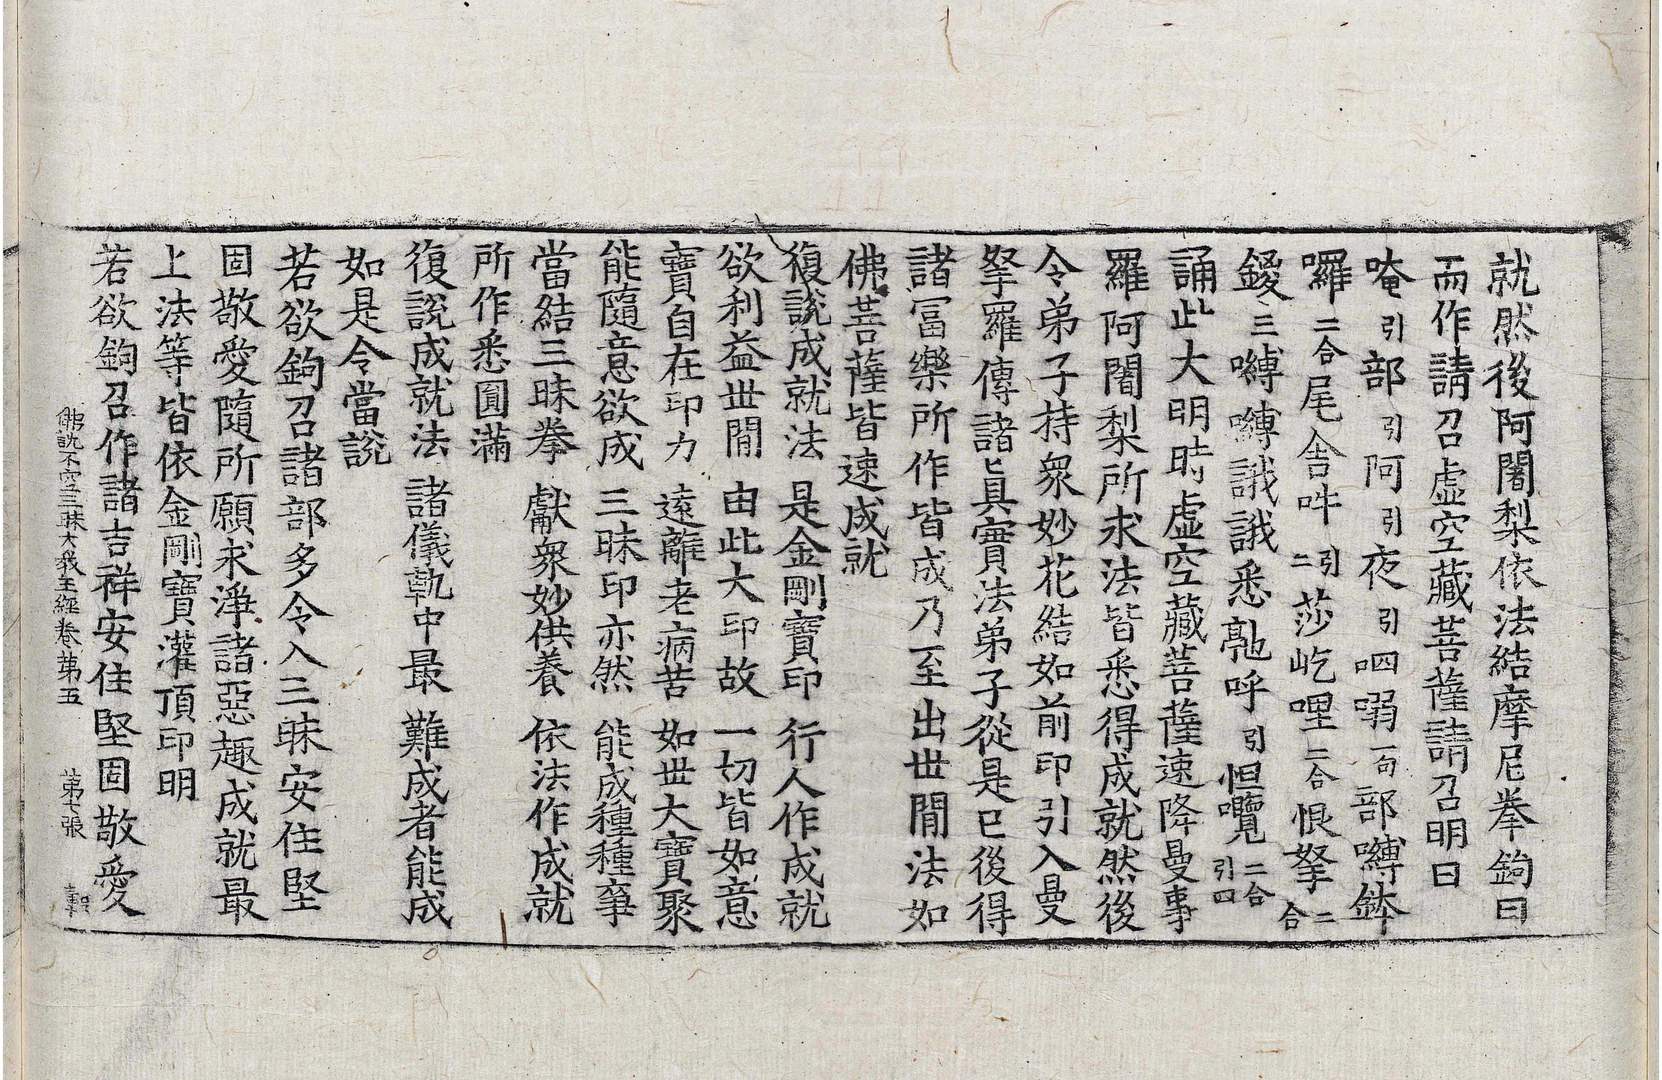 就然後阿闍梨依法結摩尼拳鉤曰
而作請召虛空藏菩薩請召明曰
唵引部引阿引夜引呬弱一句部嚩鉢
囉二合尾舍吽引二莎屹哩二合恨拏二合
鑁三嚩嚩誐誐悉亁呼引怛囕二合引四
誦此大明時虛空藏菩薩速降曼拏
羅阿闍梨所求法皆悉得成就然後
令弟子持眾妙花結如前印引入曼
拏羅傳諸眞實法弟子從是已後得
諸冨樂所作皆成乃至出世閒法如
佛菩薩皆速成就
復說成就法 是金剛寶印 行人作成就
欲利益世閒 由此大印故 一切皆如意
寶自在印力 遠離老病苦 如世大寶聚
能隨意欲成 三昧印亦然 能成種種事
當結三昧拳 獻眾妙供養 依法作成就
所作悉圓滿
復說成就法 諸儀軌中最 難成者能成
如是令當說
若欲鉤召諸部多令入三昧安住堅
固敬愛隨所願求淨諸惡趣成就最
上法等皆依金剛寶灌頂印明
若欲鉤召作諸吉祥安住堅固敬愛
佛說不空三昧大教王經卷第五 第七張